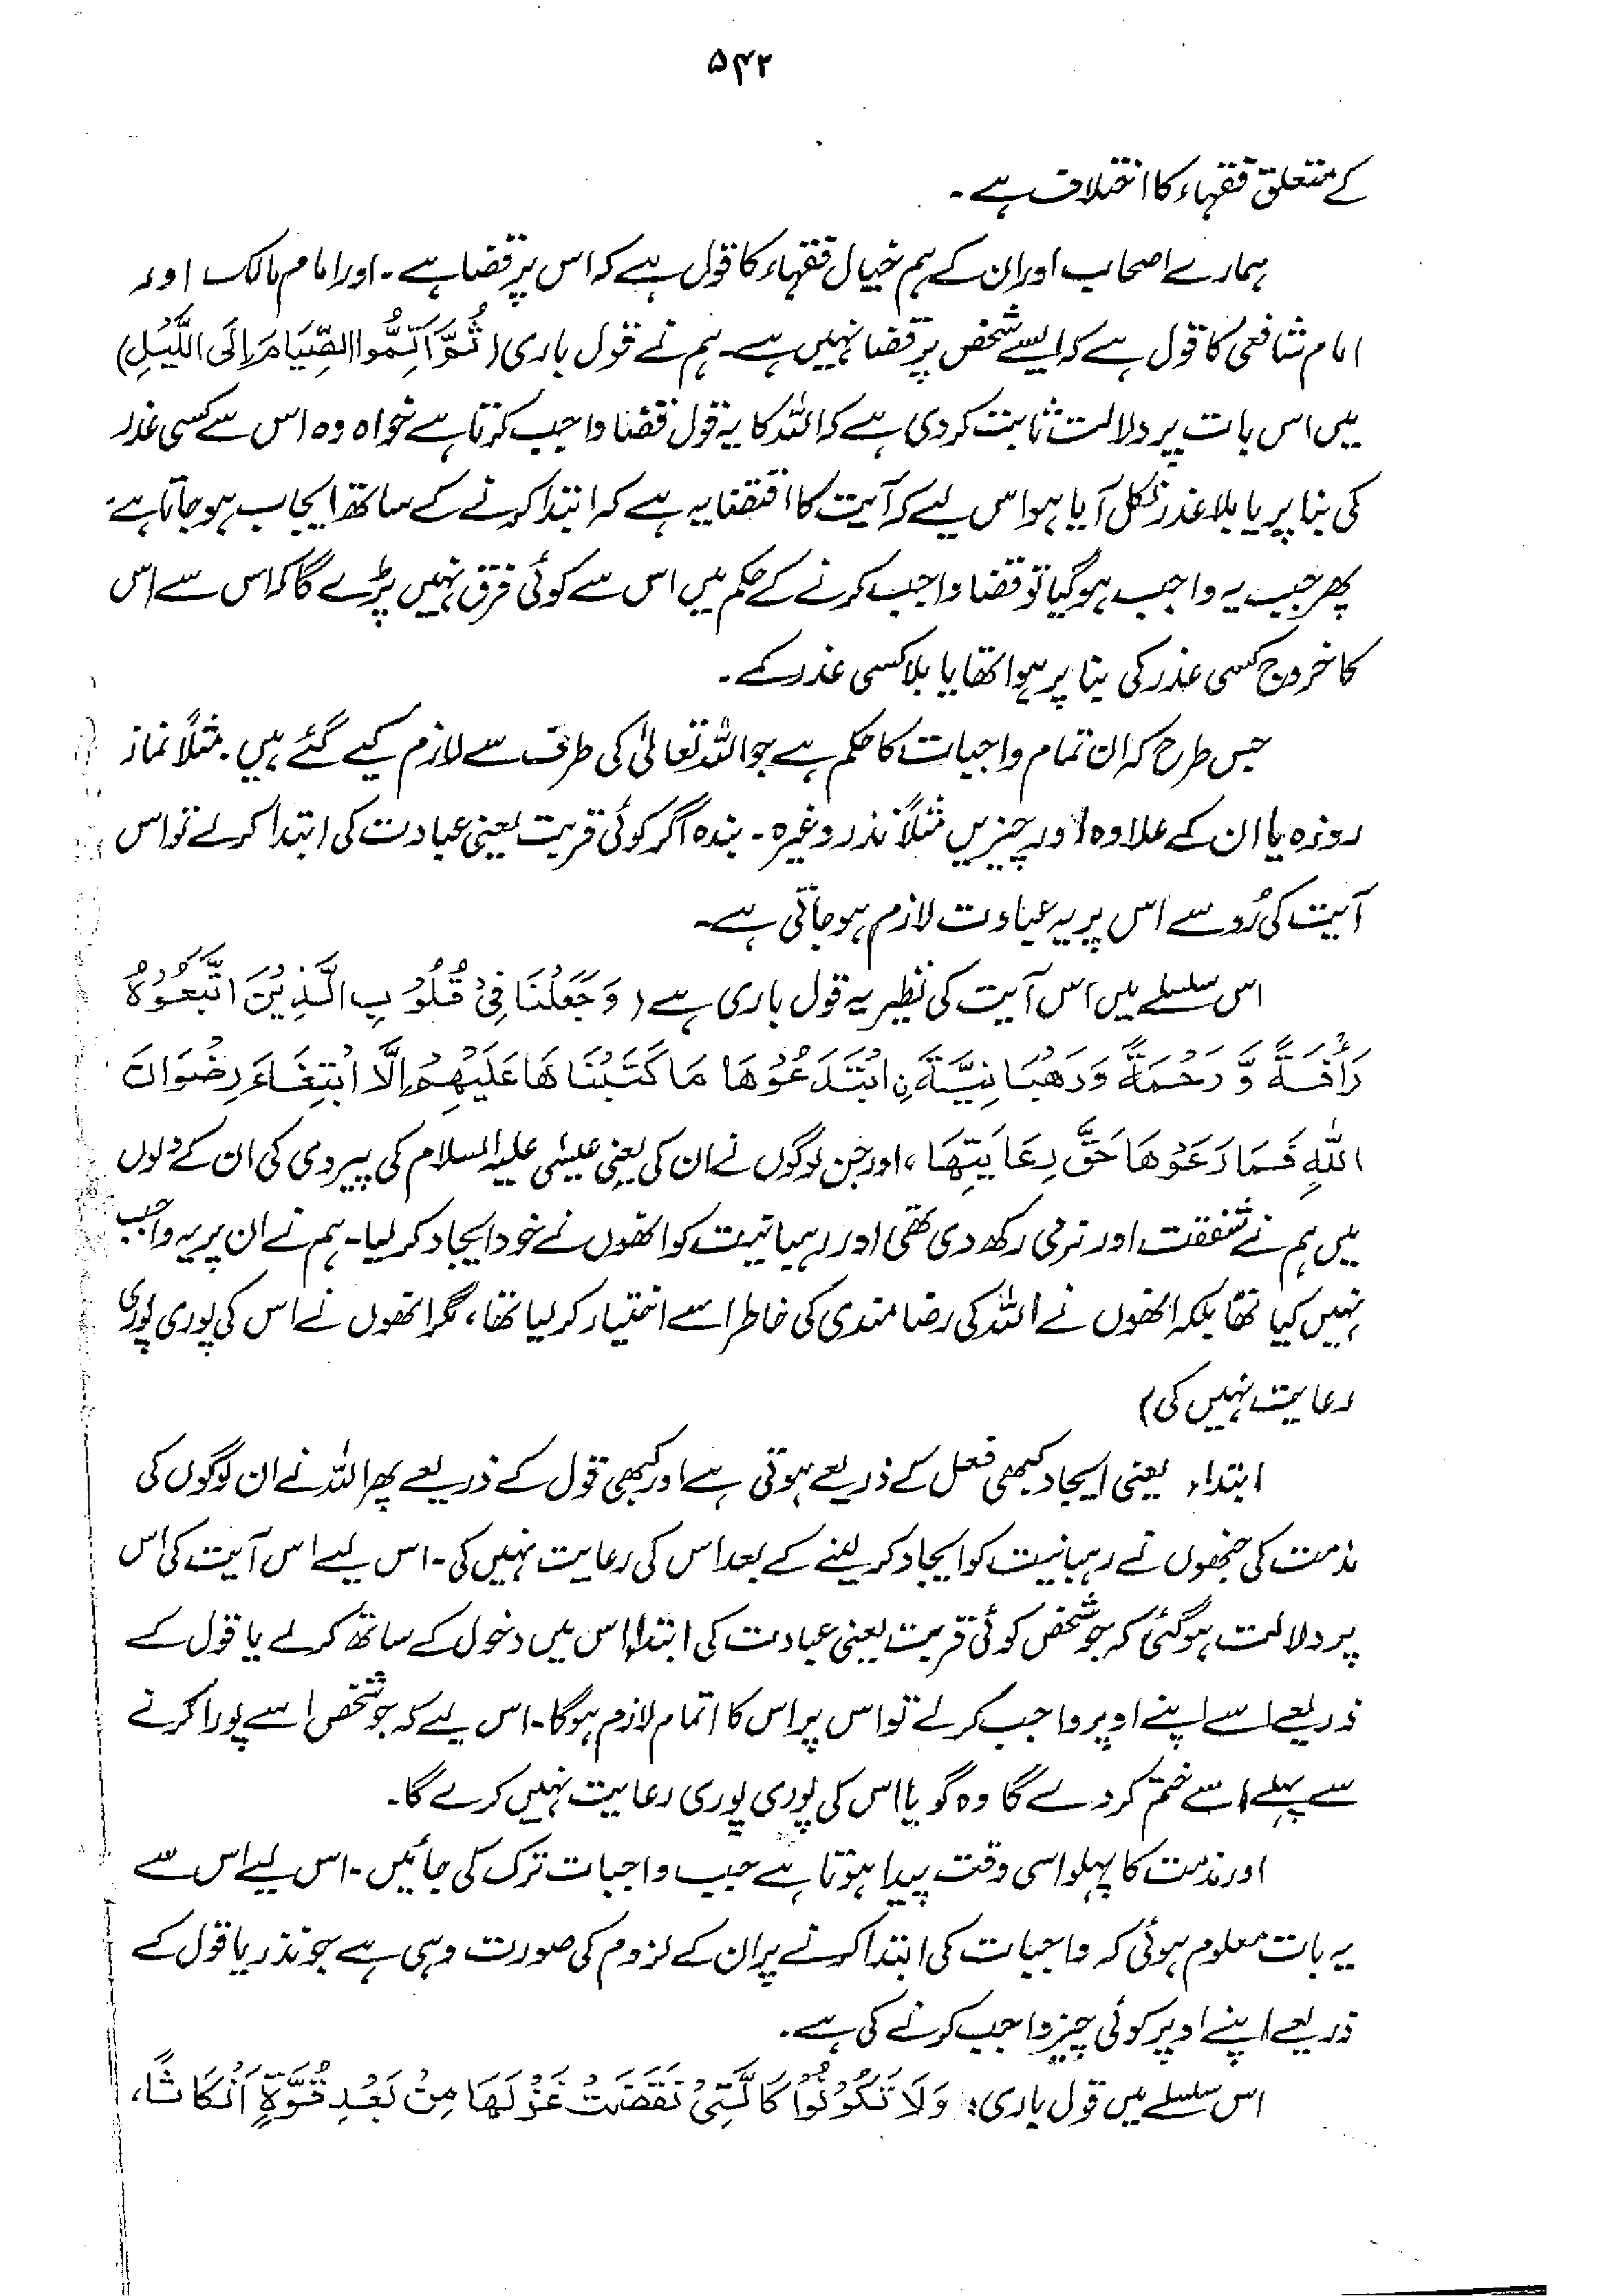 ۵۴۲
کے متعلق فقہاء کا اختلاف ہے۔
ہمارے اصحاب اور ان کے ہم خیال فقہاء کا قول ہے کہ اس پر قضا ہے۔ اور امام مالک اور
امام شافعی کا قول ہے کہ ایسے شخص پر قضا نہیں ہے۔ ہم نے قول باری (ثُمَّ اَتِمُّوا الصِّیَامَ اِلَی اللَّیْلِ)
میں اس بات پر دلالت ثابت کر دی ہے کہ اللہ کا یہ قول قضا واجب کرتا ہے خواہ وہ اس سے کسی عذر
کی بنا پر یا بلا عذر نکل آیا ہو اس لیے کہ آیت کا اقتضا یہ ہے کہ ابتدا کرنے کے ساتھ ایجاب ہو جاتا ہے۔
پھر جب یہ واجب ہو گیا تو قضا واجب کرنے کے حکم میں اس سے کوئی فرق نہیں پڑے گا کہ اس سے اس
کا خروج کسی عذر کی بنا پر ہوا تھا یا بلا کسی عذر کے۔
جس طرح کہ ان تمام واجبات کا حکم ہے جو اللہ تعالیٰ کی طرف سے لازم کیے گئے ہیں۔ مثلاً نماز
روزہ یا ان کے علاوہ اور چیزیں مثلاً نذر وغیرہ۔ بندہ اگر کوئی قربت یعنی عبادت کی ابتدا کرلے تو اس
آیت کی رُو سے اس پر یہ عبادت لازم ہو جاتی ہے۔
اس سلسلے میں اس آیت کی نظیر یہ قول باری ہے (وَجَعَلْنَا فِیْ قُلُوْبِ الَّذِیْنَ اتَّبَعُوْہُ
رَأْفَۃً وَّ رَحْمَۃً وَرَھْبَانِیَّۃَ نِ ابْتَدَعُوْھَا مَا کَتَبْنَاھَا عَلَیْھِمْ اِلَّا ابْتِغَاءَ رِضْوَانَ
اللّٰہِ فَمَا رَعَوْھَا حَقَّ رِعَایَتِھَا، اور جن لوگوں نے ان کی یعنی عیسٰی علیہ السلام کی پیروی کی ان کے دلوں
میں ہم نے شفقت اور نرمی رکھ دی تھی اور رہبانیت کو انھوں نے خود ایجاد کر لیا۔ ہم نے ان پر یہ واجب
نہیں کیا تھا بلکہ انھوں نے اللہ کی رضا مندی کی خاطر اسے اختیار کر لیا تھا، مگر انھوں نے اس کی پوری پوری
رعایت نہیں کی)
ابتداء یعنی ایجاد کبھی فعل کے ذریعے ہوتی ہے اور کبھی قول کے ذریعے پھر اللہ نے ان لوگوں کی
مذمت کی جنھوں نے رہبانیت کو ایجاد کر لینے کے بعد اس کی رعایت نہیں کی۔ اس لیے اس آیت کی اس
پر دلالت ہو گئی کہ جو شخص کوئی قربت یعنی عبادت کی ابتدا اس میں دخول کے ساتھ کرلے یا قول کے
ذریعے اسے اپنے اوپر واجب کرلے تو اس پر اس کا اتمام لازم ہوگا۔ اس لیے کہ جو شخص اسے پورا کرنے
سے پہلے اسے ختم کر دے گا وہ گویا اس کی پوری پوری رعایت نہیں کرے گا۔
اور مذمت کا پہلو اسی وقت پیدا ہوتا ہے جب واجبات ترک کی جائیں۔ اس لیے اس سے
یہ بات معلوم ہوئی کہ واجبات کی ابتدا کرنے پر ان کے لزوم کی صورت وہی ہے جو نذر یا قول کے
ذریعے اپنے اوپر کوئی چیز واجب کرنے کی ہے۔
اس سلسلے میں قول باری: وَلَا تَکُوْنُوْا کَالَّتِیْ نَقَضَتْ غَزْلَھَا مِنْ بَعْدِ قُوَّۃٍ اَنْکَاثًا،